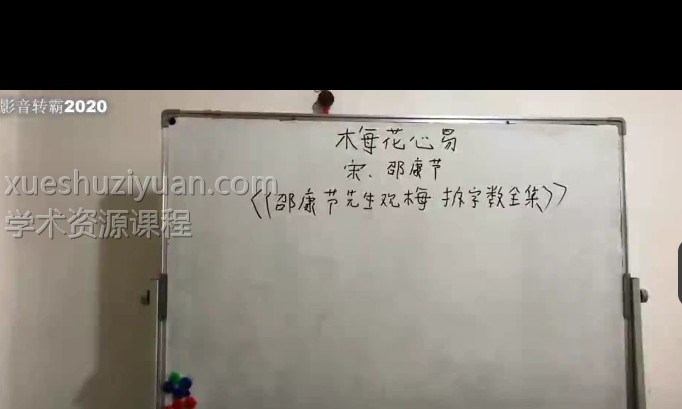 影音转霸2020
梅花心易
宋、邵康节
xueshuziyuan.com
《邵康节先生观梅拆字数全集》
学术资源课程